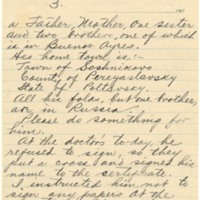 3.
a Father, Mother, One sister
and two brothers, one of which
is in Buenos Ayres.
His home town is:-
Town of Bosnikovo
County of Pereyaslavsky
State of Poltavsky
All his folks, but one brother,
are in Russia.
Please do something for
him.
At the doctor's to-day he
refused to sign, so they
put a cross and signed his
name to the sertefkate.
I instructed him not to
sign any papers at the